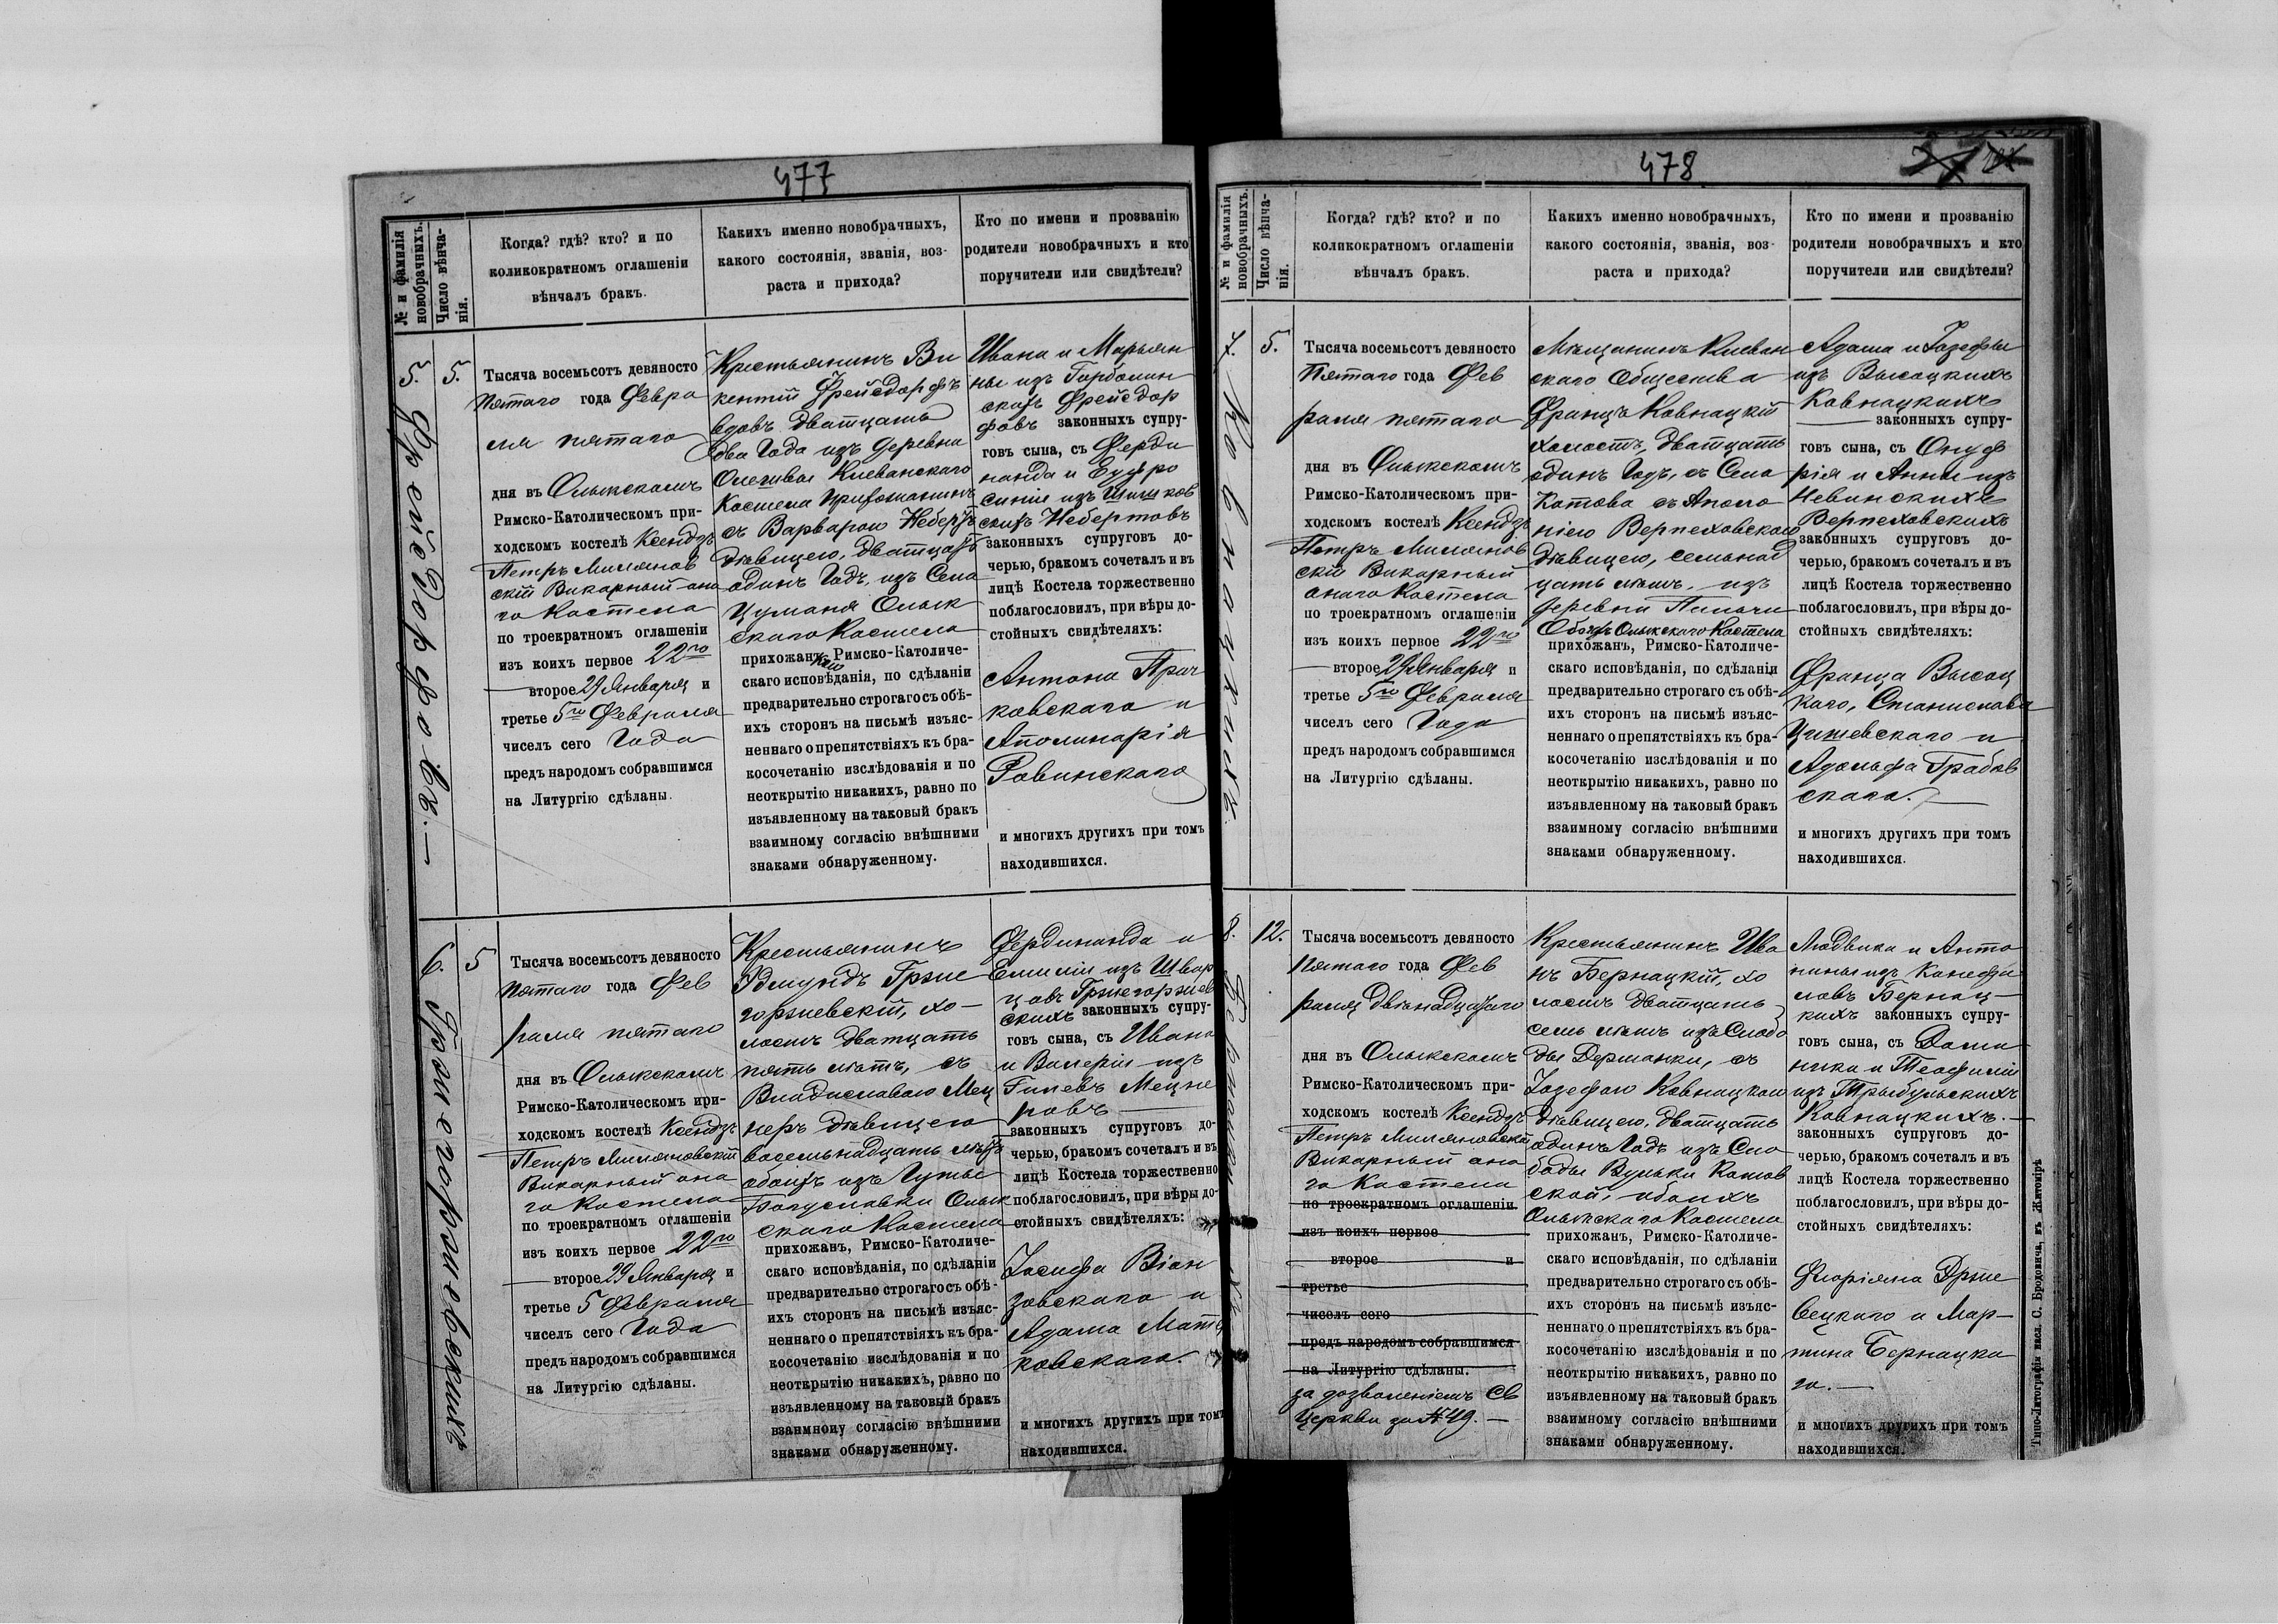 477
№ и фамилія
новобрачныхъ.
Число вѣнча-
нія.
Когда? гдѣ? кто? и по
коликократномъ оглашеніи
вѣнчалъ бракъ.
Какихъ именно новобрачныхъ,
какого состоянія, званія, воз-
раста и прихода?
Кто по имени и прозванію
родители новобрачныхъ и кто
поручители или свидѣтели?
5.
Фрейсдорфовъ.—
5.
Тысяча восемьсотъ девяносто
Пятаго года Февра
ля пятаго
дня въ Олыкскомъ
Римско-Католическомъ при-
ходскомъ костелѣ Ксендзъ
Петръ Миляновъ
скій Викарный она
го Костела
по троекратномъ оглашеніи
изъ коихъ первое 22го
второе 29 Января и
третье 5го Февраля
чиселъ сего Года
предъ народомъ собравшимся
на Литургію сдѣланы.
Крестьянинъ Ви
кентій Фрейсдорфъ
вдовъ дватцать
два Года изъ Деревни
Олешвы Клеванскаго
Костела прихожанинъ
съ Варварою Неберть
дѣвицею, дватцать
одинъ Годъ, изъ Села
Цуманя Олык
скаго Костела
прихожанкою Римско-Католиче-
скаго исповѣданія, по сдѣланіи
предварительно строгаго съ обѣ-
ихъ сторонъ на письмѣ изъяс-
неннаго о препятствіяхъ къ бра-
косочетанію изслѣдованія и по
неоткрытію никакихъ, равно по
изъявленному на таковый бракъ
взаимному согласію внѣшними
знаками обнаруженному.
Ивана и Марьян
ны изъ
скихъ Фрейсдор
фовъ законныхъ супру-
говъ сына, съ Ферди
нанда и Ефро
синіи изъ Шишков
скихъ Небертовъ
законныхъ супруговъ до-
черью, бракомъ сочеталъ и въ
лицѣ Костела торжественно
поблагословилъ, при вѣры до-
стойныхъ свидѣтеляхъ:
Антона Прач
ковскаго и
Аполинарія
Ровинскаго
и многихъ другихъ при томъ
находившихся.
6.
Гржегоржевскихъ
5
Тысяча восемьсотъ девяносто
Пятаго года Фев
раля пятаго
дня въ Олыкскомъ
Римско-Католическомъ при-
ходскомъ костелѣ Ксендзъ
Петръ Миляновскій
Викарный она
го Костела
по троекратномъ оглашеніи
изъ коихъ первое 22го
второе 29 Января и
третье 5 Февраля
чиселъ сего Года
предъ народомъ собравшимся
на Литургію сдѣланы.
Крестьянинъ
Эдмундъ Грже
горжевскій, хо-
лостъ дватцать
пять лѣтъ, съ
Владиславою Мец
неръ дѣвицею
восемьнадцать лѣтъ
обоихъ изъ Гутъ
Богуславки Олык
скаго Костела
прихожанъ, Римско-Католиче-
скаго исповѣданія, по сдѣланіи
предварительно строгаго съ обѣ-
ихъ сторонъ на письмѣ изъяс-
неннаго о препятствіяхъ къ бра-
косочетанію изслѣдованія и по
неоткрытію никакихъ, равно по
изъявленному на таковый бракъ
взаимному согласію внѣшними
знаками обнаруженному.
Фердинанда и
Емиліи изъ Швар
цовъ Гржегоржев
скихъ законныхъ супру-
говъ сына, съ Ивана
и Валеріи изъ
Гилевъ Мецне
ровъ
законныхъ супруговъ до-
черью, бракомъ сочеталъ и въ
лицѣ Костела торжественно
поблагословилъ, при вѣры до-
стойныхъ свидѣтеляхъ:
Іосифа Віон
зовскаго и
Адама Мать
ковскаго.
и многихъ другихъ при томъ
находившихся.
478
№ и фамилія
новобрачныхъ.
Число вѣнча-
нія.
Когда? гдѣ? кто? и по
коликократномъ оглашеніи
вѣнчалъ бракъ.
Какихъ именно новобрачныхъ,
какого состоянія, званія, воз-
раста и прихода?
Кто по имени и прозванію
родители новобрачныхъ и кто
поручители или свидѣтели?
7.
Ковнацкихъ.
5.
Тысяча восемьсотъ девяносто
Пятаго года Фев
раля пятаго
дня въ Олыкскомъ
Римско-Католическомъ при-
ходскомъ костелѣ Ксендзъ
Петръ Миляновъ
скій Викарный
онаго Костела
по троекратномъ оглашеніи
изъ коихъ первое 22го
второе 29 Января и
третье 5го Февраля
чиселъ сего Года
предъ народомъ собравшимся
на Литургію сдѣланы.
Мѣщанинъ Клеван
скаго Общества
Францъ Ковнацкій
холостъ, дватцать
одинъ Годъ, съ Села
Котова съ Аполо
ніею Верпеховскою
дѣвицею, семьнад
цать лѣтъ, изъ
деревни
Обоихъ Олыкскаго Костела
прихожанъ, Римско-Католиче-
скаго исповѣданія, по сдѣланіи
предварительно строгаго съ обѣ-
ихъ сторонъ на письмѣ изъяс-
неннаго о препятствіяхъ къ бра-
косочетанію изслѣдованія и по
неоткрытію никакихъ, равно по
изъявленному на таковый бракъ
взаимному согласію внѣшними
знаками обнаруженному.
Адама и Іозефы
изъ Высоцкихъ
Ковнацкихъ
законныхъ супру-
говъ сына, съ Онуф
рія и Анны изъ
Невинскихъ
Верпеховскихъ
законныхъ супруговъ до-
черью, бракомъ сочеталъ и въ
лицѣ Костела торжественно
поблагословилъ, при вѣры до-
стойныхъ свидѣтеляхъ:
Франца Высоц
каго, Станислава
Цишевскаго и
Адольфа Грабов
скаго.
и многихъ другихъ при томъ
находившихся.
8.
12.
Тысяча восемьсотъ девяносто
Пятаго года Фев
раля двѣнадцатаго
дня въ Олыкскомъ
Римско-Католическомъ при-
ходскомъ костелѣ Ксендзъ
Петръ Миляновскій
Викарный она
го Костела
по троекратномъ оглашеніи
изъ коихъ первое
второе и
третье
чиселъ сего
предъ народомъ собравшимся
на Литургію сдѣланы.
за дозволеніемъ Св
Церкви за № 49.—
Крестьянинъ Ива
нъ Бернацкій, хо
лостъ дватцать
семь лѣтъ изъ Слобо
ды Держанки, съ
Іозефою Ковнацкою
дѣвицею, дватцать
одинъ Годъ изъ Сло
боды Вульки Котов
ской, обоихъ
Олыкскаго Костела
прихожанъ, Римско-Католиче-
скаго исповѣданія, по сдѣланіи
предварительно строгаго съ обѣ-
ихъ сторонъ на письмѣ изъяс-
неннаго о препятствіяхъ къ бра-
косочетанію изслѣдованія и по
неоткрытію никакихъ, равно по
изъявленному на таковый бракъ
взаимному согласію внѣшними
знаками обнаруженному.
Людвика и Анто
нины изъ Канефи
ловъ Бернац-
кихъ законныхъ супру-
говъ сына, съ Доми
ника и Теофиліи
изъ Трыбульскихъ
Ковнацкихъ.—
законныхъ супруговъ до-
черью, бракомъ сочеталъ и въ
лицѣ Костела торжественно
поблагословилъ, при вѣры до-
стойныхъ свидѣтеляхъ:
Флоріяна Држе
вецкаго и Мар-
тина Бернацка
го.—
и многихъ другихъ при томъ
находившихся.
Типо-Литографія насл. С. Бродовича, въ Житомірѣ